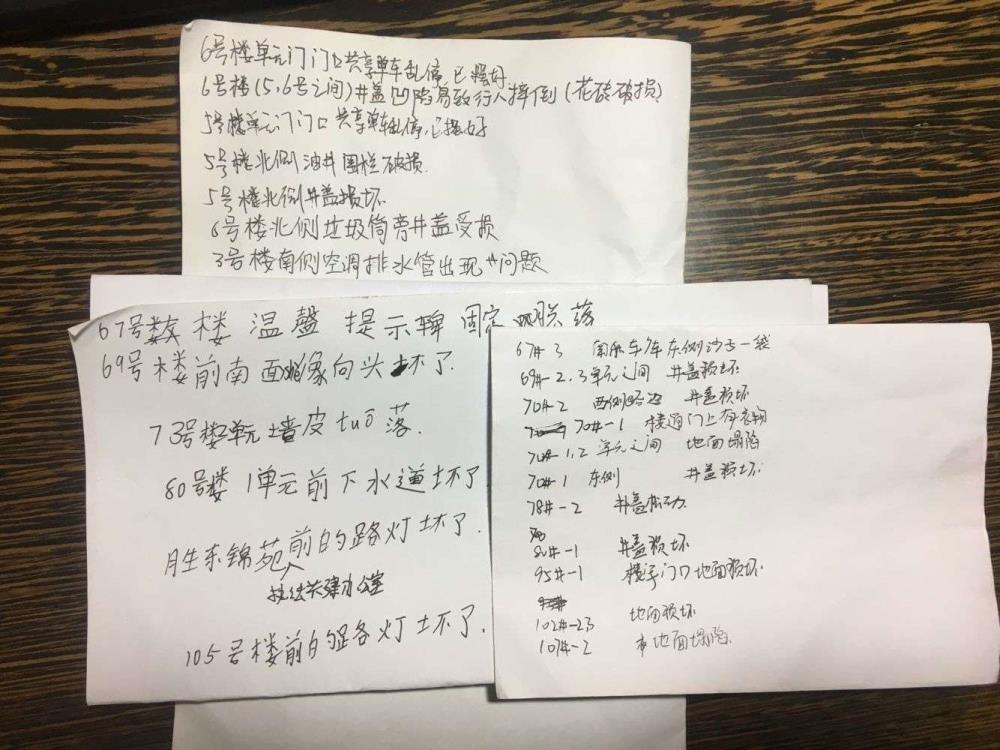 6号楼单元门门口共享单车乱停,已摆好
6号楼(5,6号之间)井盖凹陷易致行人摔倒(花砖破损)
5号楼单元门门口 共享单车乱停,已摆好
5号楼北侧油井围栏破损.
5号楼北侧井盖损坏
6号楼北侧垃圾筒旁井盖受损
3号楼南侧空调排水管出现问题
67号 楼 温馨 提示牌 固定 脱落
69号楼前南面 像向头坏了.
73号楼2单元墙皮tuō落.
80号楼 1单元前下水道坏了
胜东锦苑前的路灯坏了.
办公室
105号楼前的路灯坏了.
67#-3 车库东侧沙子一袋
69#-2.3单元之间 井盖损坏
70#-2 西侧路边 井盖损坏
70#-1 楼道门上有衣物
70#-1,2单元之间 地面塌陷
70#-1 东侧 井盖损坏
78#-2 井盖松动
80#-1 井盖损坏
95#-1 楼子门口地面损坏
102#-23 地面损坏
107#-2 地面塌陷